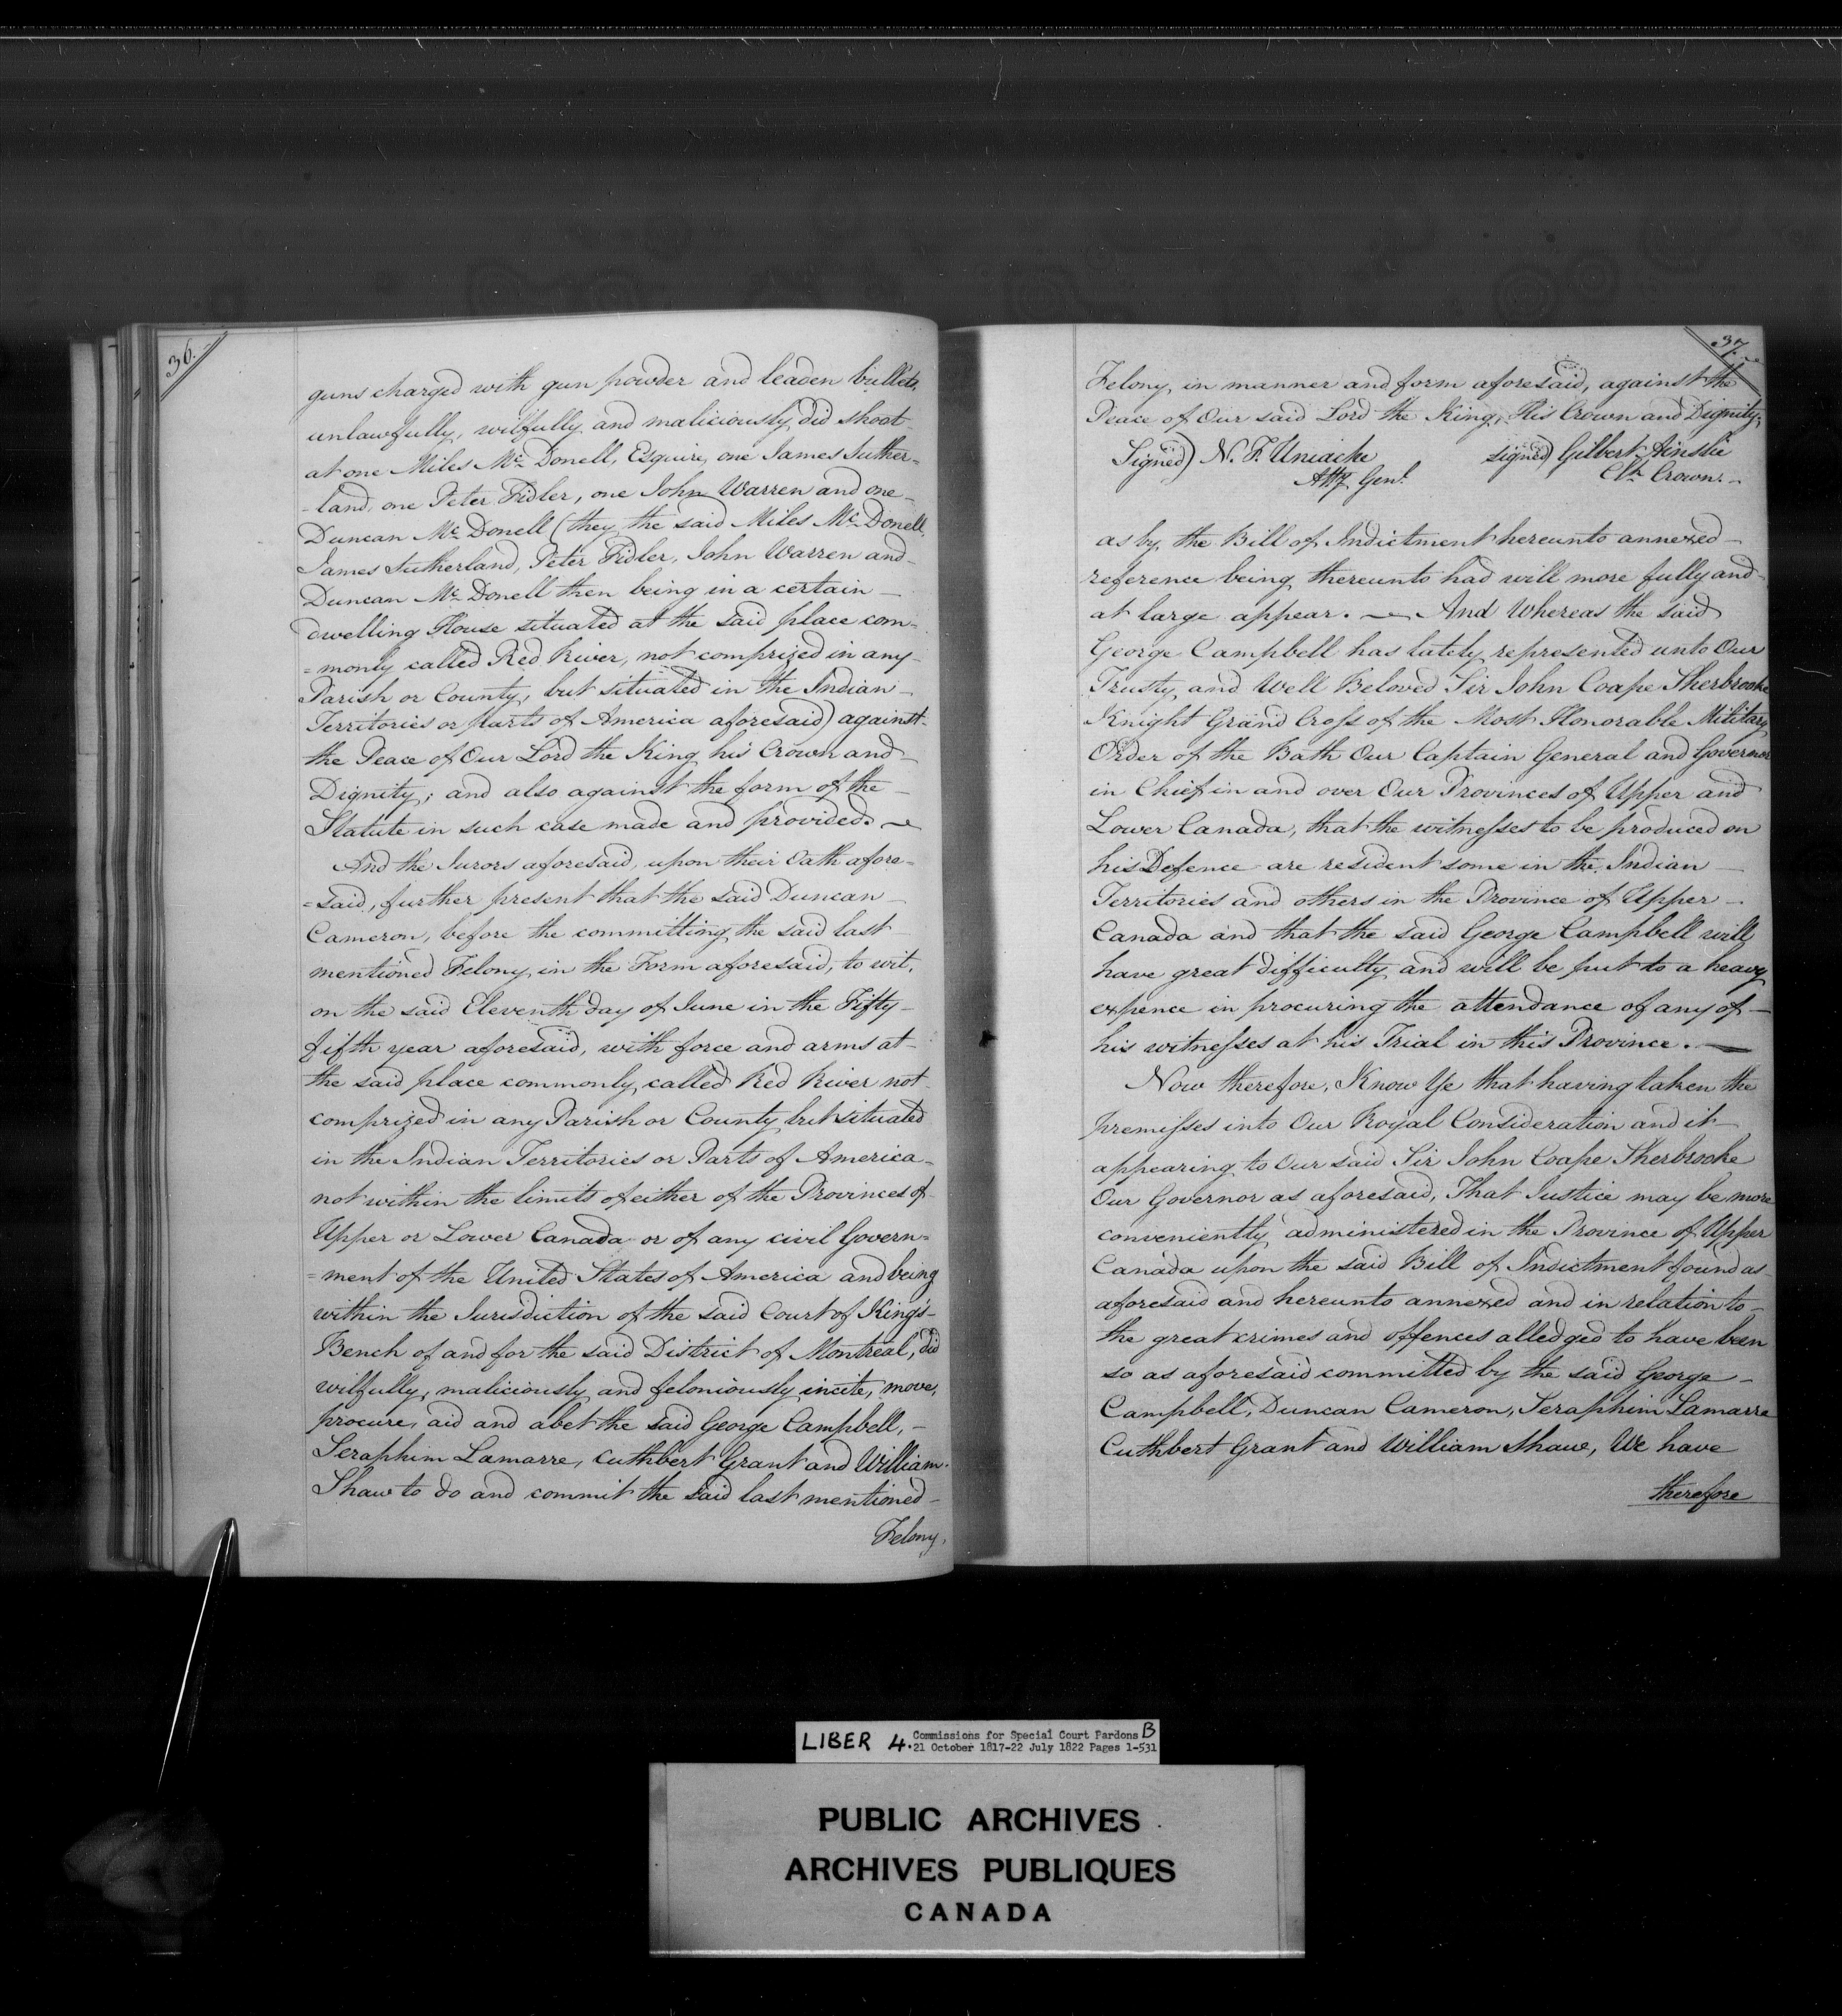 36.
guns charged with gun powder and leaden bullets,
unlawfully, wilfully and maliciously did shoot
at one Miles Mc Donell, Esquire, one James Suther=
=land, one Peter Fidler, one John Warren and one
Duncan Mc Donell (they the said Miles Mc Donell,
James Sutherland, Peter Fidler, John Warren and
Duncan Mc Donell then being in a certain
dwelling House situated at the said place com=
=monly called Red River, not comprized in any
Parish or County, but situated in the Indian
Territories or parts of America aforesaid) against
the Peace of Our Lord the King his Crown and
Dignity; and also against the form of the
Statute in such case made and provided.
And the Jurors aforesaid, upon their Oath afore=
=said, further present that the said Duncan
Cameron, before the committing the said last
mentioned Felony in the Form aforesaid, to wit,
on the said Eleventh day of June in the Fifty
fifth year aforesaid, with force and arms at
the said place commonly called Red River not
comprized in any Parish or County but situated
in the Indian Territories or Parts of America
not within the limits of either of the Provinces of
Upper or Lower Canada or of any civil Govern=
=ment of the United States of America and being
within the Jurisdiction of the said Court of King's
Bench of and for the said District of Montreal, did
wilfully, maliciously and feloniously incite, move,
procure, aid and abet the said George Campbell, –
Seraphim Lamarre, Cuthbert Grant and William
Shaw to do and commit the said last mentioned
Felony,
37.
Felony, in manner and form aforesaid, against the
Peace of Our said Lord the King, His Crown and Dignity,
Signed) N. F. Uniacke signed) Gilbert Ainslie
Atty Genl. Clk Crown. –
as by the Bill of Indictment hereunto annexed
reference being thereunto had will more fully and
at large appear. — And Whereas the said
George Campbell has lately represented unto Our
Trusty and Well Beloved Sir John Coape Sherbrooke
Knight Grand Cross of the Most Honorable Military
Order of the Bath Our Captain General and Governor
in Chief in and over Our Provinces of Upper and
Lower Canada, that the witnesses to be produced on
his Defence are resident some in the Indian
Territories and others in the Province of Upper
Canada and that the said George Campbell will
have great difficulty and will be put to a heavy
expence in procuring the attendance of any of
his witnesses at his Trial in this Province. —
Now therefore, Know Ye that having taken the
premisses into Our Royal Consideration and it
appearing to Our said Sir John Coape Sherbrooke
Our Governor as aforesaid, That Justice may be more
conveniently administered in the Province of Upper
Canada upon the said Bill of Indictment found as
aforesaid and hereunto annexed and in relation to
the great crimes and offences alledged to have been
so as aforesaid committed by the said George
Campbell, Duncan Cameron, Seraphim Lamarre
Cuthbert Grant and William Shaw, We have
therefore
LIBER 4. Commissions for Special Court Pardons B
21 October 1817-22 July 1822 Pages 1-531
PUBLIC ARCHIVES
ARCHIVES PUBLIQUES
CANADA